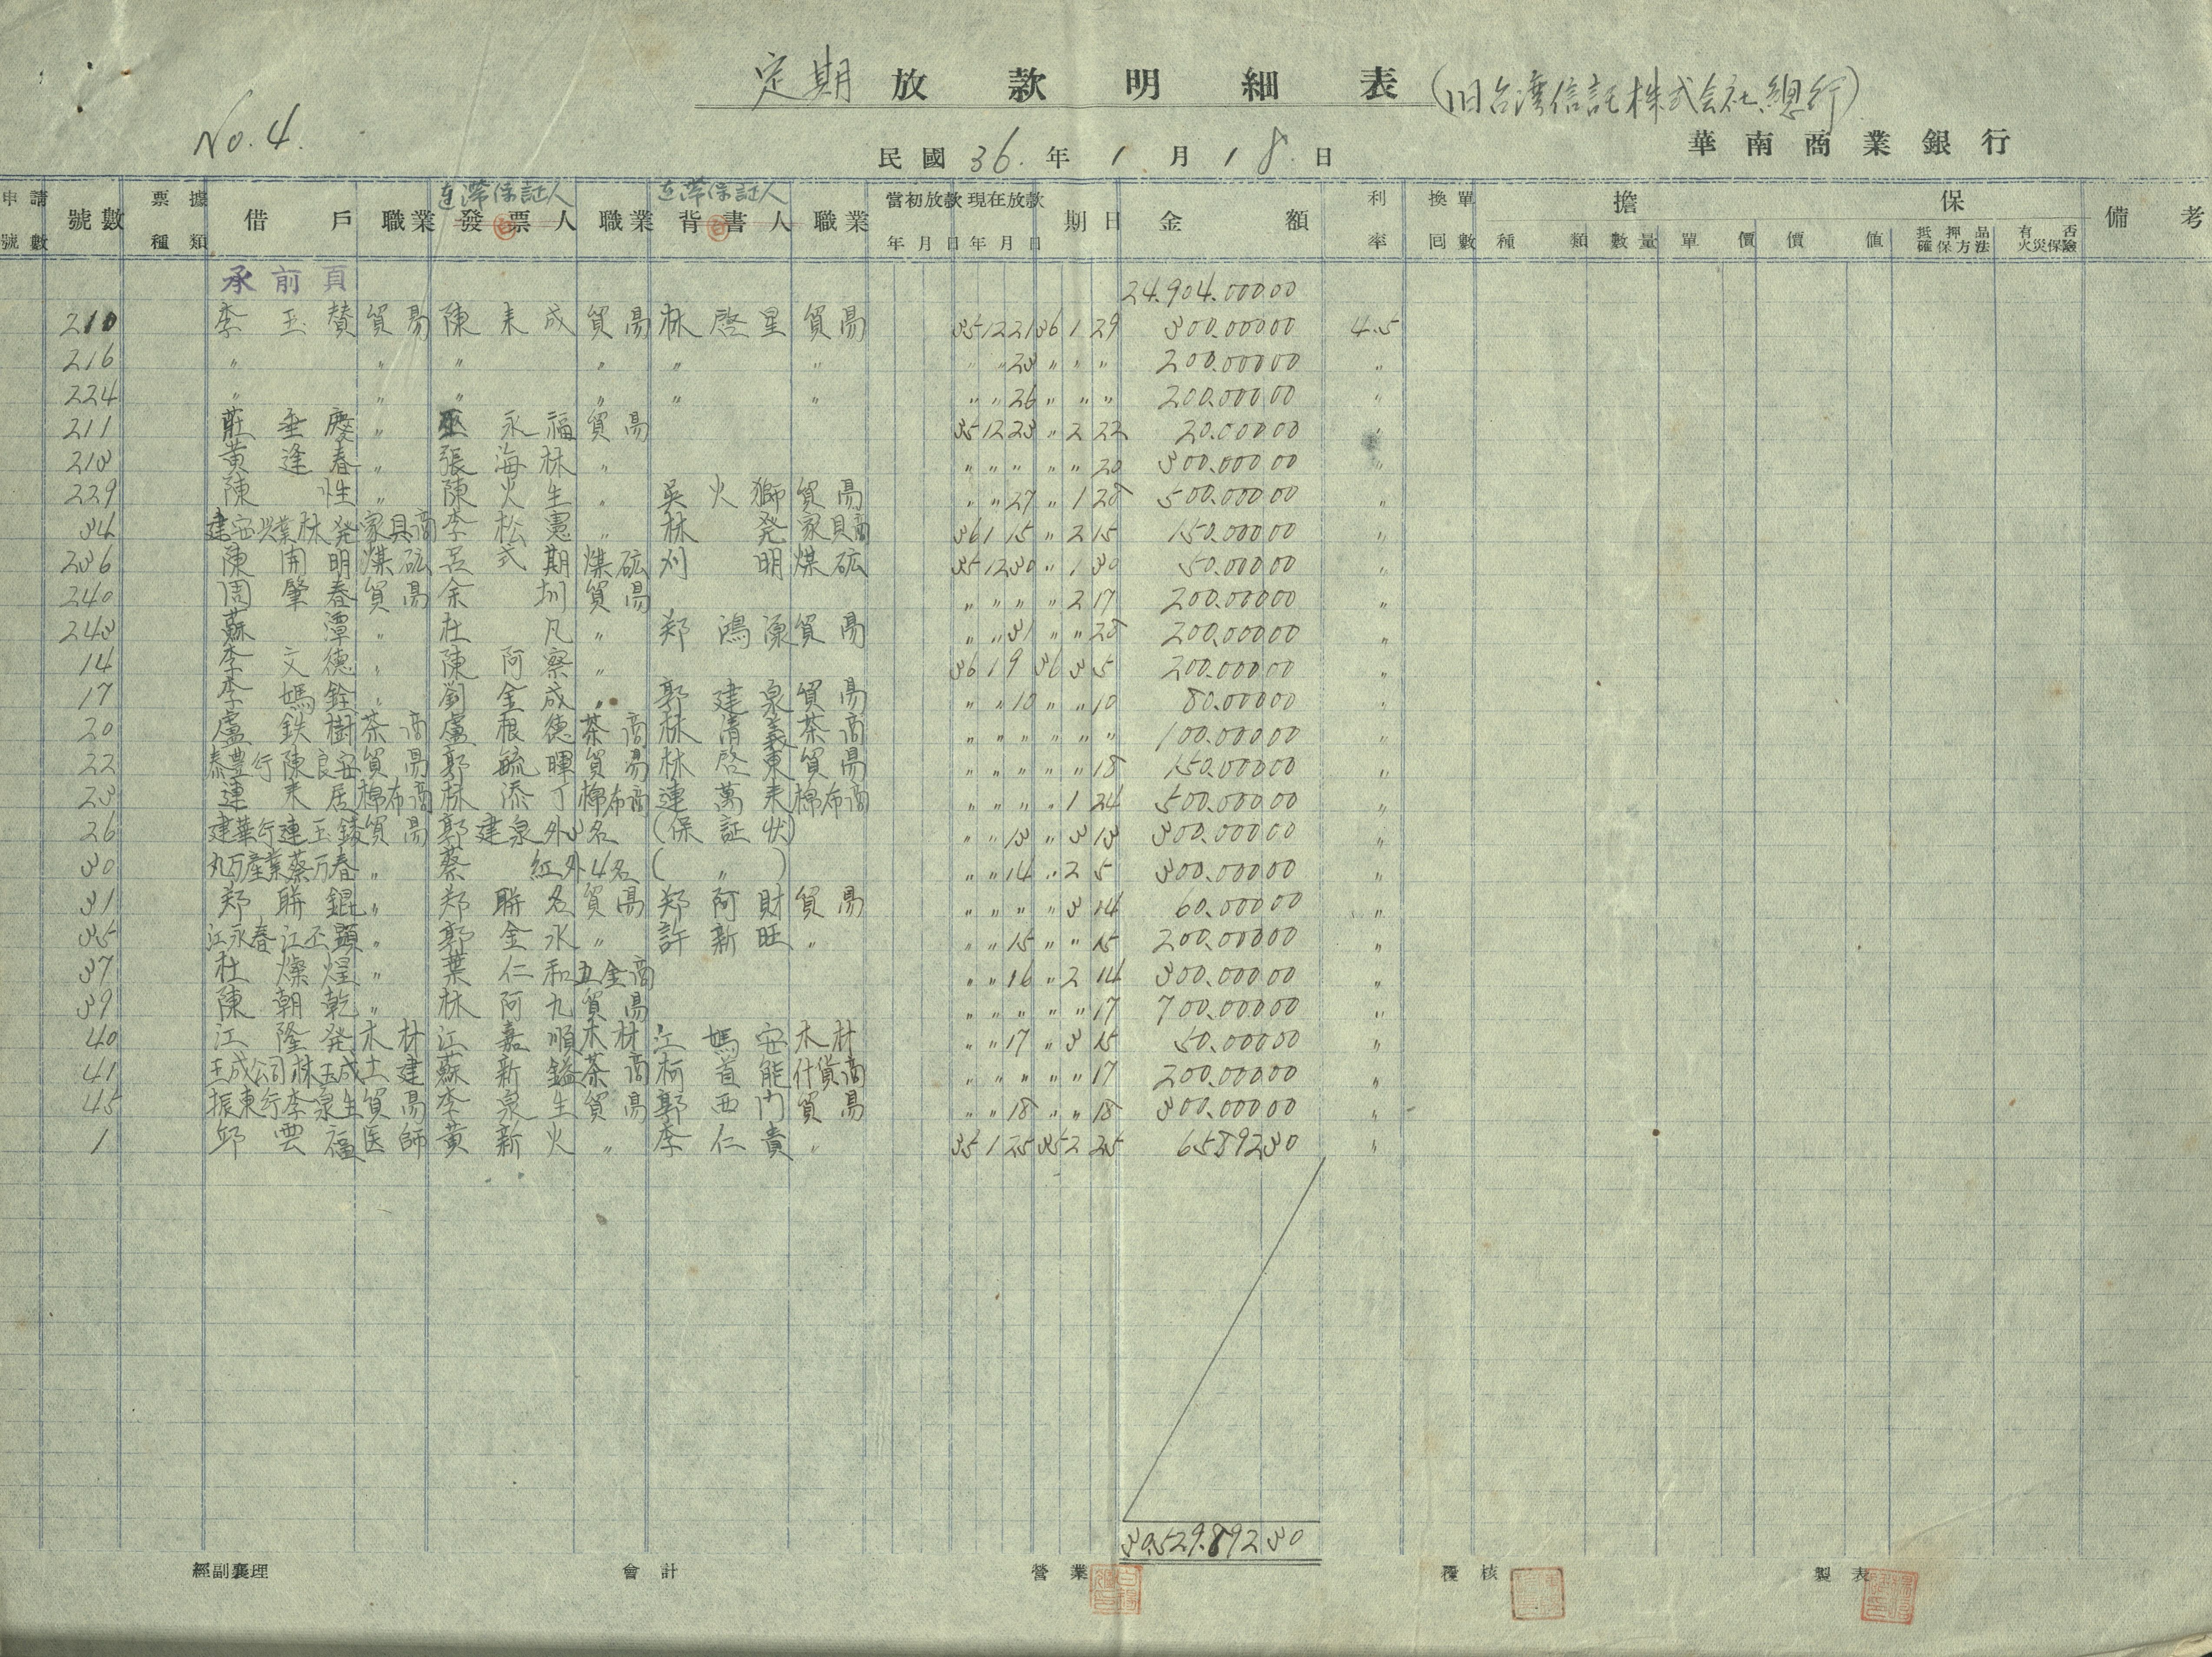 定期 放款明細表 (旧台湾信託株式会社總行)
No. 4.
民國 36. 年 1 月 18. 日
華南商業銀行
申請號數 號數 票據種類 借戶 職業 發票人 連帶保証人 職業 背書人 連帶保証人 職業 當初放款年月日 現在放款年月日 期日 金額 利率 換單回數 擔保 種類 數量 單價 價值 抵押品確保方法 有否火災保險 備考
承前頁 24.904.000 00
210 李玉賛 貿易 陳来成 貿易 林啓星 貿易 35 12 21 36 1 29 300.000 00 4.5
216 〃 〃 〃 〃 〃 〃 〃 〃 23 〃 〃 〃 200.000 00 〃
224 〃 〃 〃 〃 〃 〃 〃 〃 26 〃 〃 〃 200.000 00 〃
211 莊垂慶 〃 巫永福 貿易 35 12 23 〃 2 22 20.000 00 〃
213 黄逢春 〃 張海林 〃 〃 〃 〃 〃 〃 20 300.000 00 〃
229 陳性 〃 陳火生 〃 吳火獅 貿易 〃 〃 27 〃 1 28 500.000 00 〃
34 建安興業林発 家具商 李松憲 〃 林発 家具商 36 1 15 〃 2 15 150.000 00 〃
236 陳開明 煤砿 呂式期 煤砿 刘明 煤砿 35 12 30 〃 1 30 50.000 00 〃
240 周肇春 貿易 余圳 貿易 〃 〃 〃 〃 2 17 200.000 00 〃
243 蘇潭 〃 杜凡 〃 郑鴻源 貿易 〃 〃 31 〃 〃 28 200.000 00 〃
14 李文德 〃 陳阿察 〃 36 1 9 36 3 5 200.000 00 〃
17 李媽銓 〃 劉金成 〃 郭建泉 貿易 〃 〃 10 〃 〃 10 80.000 00
20 盧鉄樹 茶商 盧根德 茶商 林清義 茶商 〃 〃 〃 〃 〃 〃 100.000 00 〃
22 泰豊行陳良安 貿易 郭毓暉 貿易 林啓東 貿易 〃 〃 〃 〃 〃 18 150.000 00 〃
23 連来居 棉布商 林添丁 棉布商 連萬来 棉布商 〃 〃 〃 〃 1 24 500.000 00 〃
26 建華行連玉錂 貿易 郭建泉外3名 (保証状) 〃 〃 13 〃 3 13 300.000 00 〃
30 丸万產業蔡万春 〃 蔡紅外4名 ( 〃 ) 〃 〃 14 〃 2 5 300.000 00 〃
31 郑聯錕 〃 郑聯名 貿易 郑阿財 貿易 〃 〃 〃 〃 3 14 60.000 00 〃
35 江永春江丕顕 〃 郭金水 〃 許新旺 〃 〃 〃 15 〃 〃 15 200.000 00 〃
37 杜燦煌 〃 葉仁和 五金商 〃 〃 16 〃 2 14 300.000 00 〃
39 陳朝乾 〃 林阿九 貿易 〃 〃 〃 〃 〃 17 700.000 00 〃
40 江隆発 木材 江嘉順 木材 江媽安 木材 〃 〃 17 〃 3 15 50.000 00 〃
41 玉成公司林玉成 土建 蘇新鎰 茶商 柯首能 什貨商 〃 〃 〃 〃 〃 17 200.000 00 〃
45 振東行李泉生 貿易 李泉生 貿易 郭西門 貿易 〃 〃 18 〃 〃 18 300.000 00 〃
1 邱雲福 医師 黄新火 〃 李仁貴 〃 35 1 25 35 2 25 65892 30 〃
30.529.892 30
經副襄理 會計 營業 覆核 製表